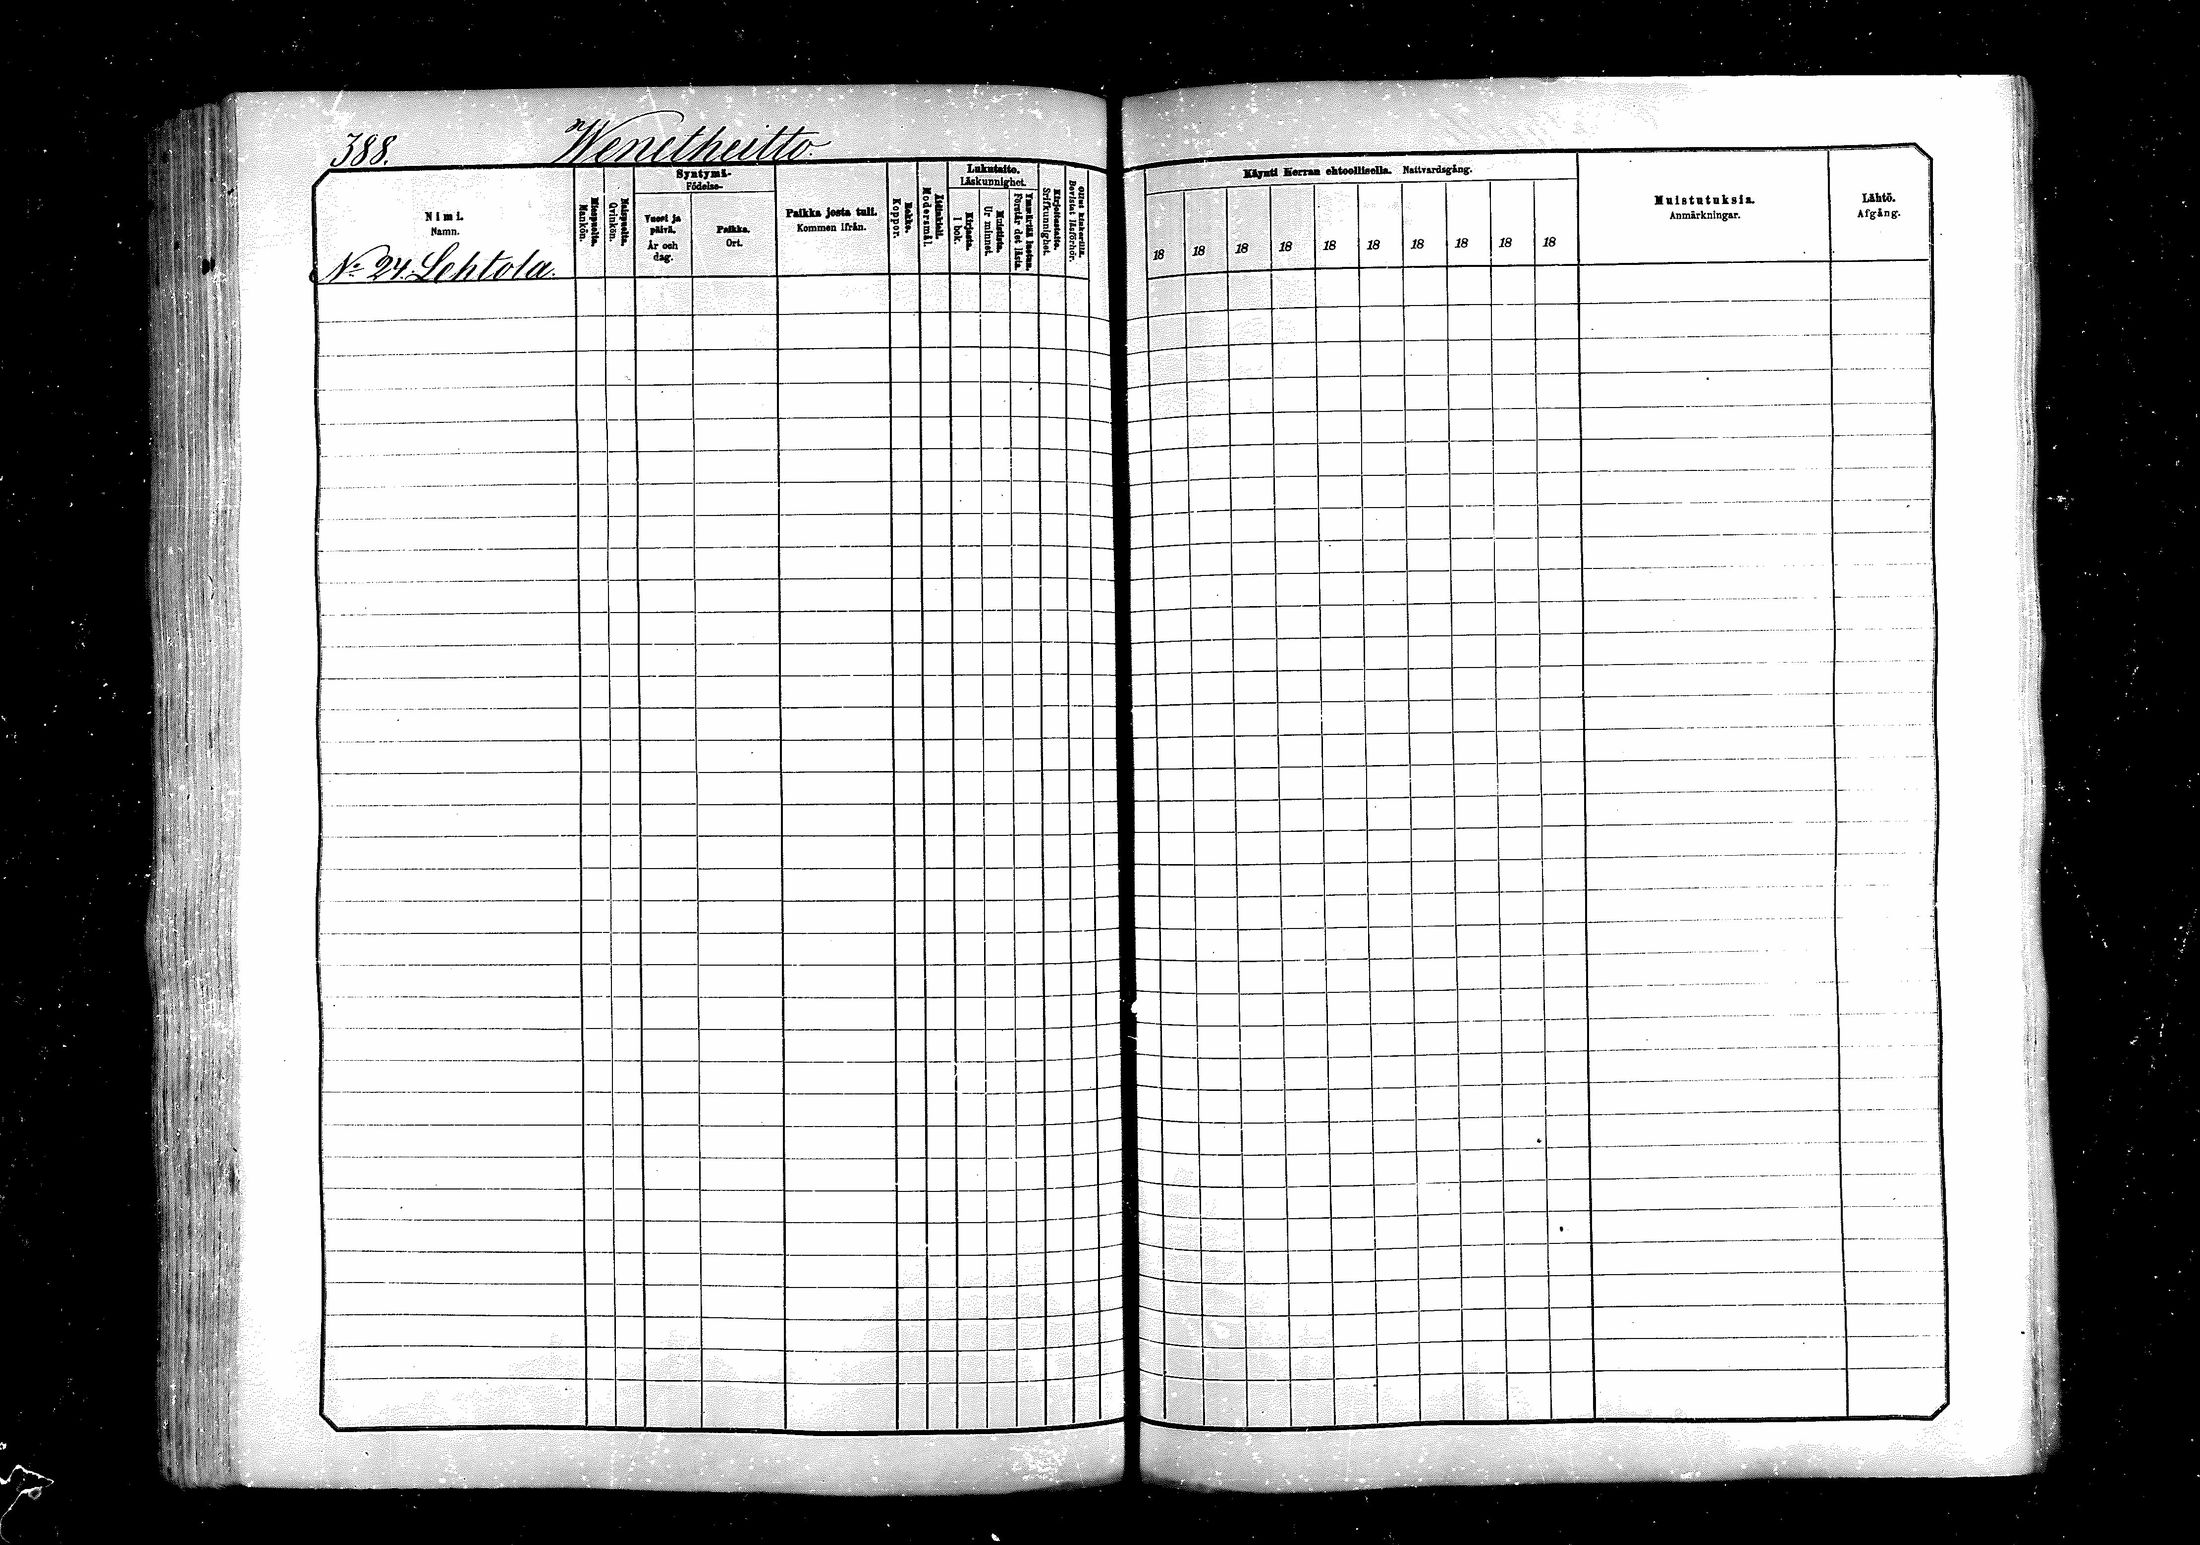 388.
Wenetheitto.
Nimi.
Namn.
Miespuolia.
Mankön.
Naispuolia.
Qvinkön.
Syntymä-
Födelse-
Vuosi ja
päivä.
År och
dag.
Paikka.
Ort.
Paikka josta tuli.
Kommen ifrån.
Rokko.
Koppor.
Äidinkieli.
Modersmål.
Lukutaito.
Läskunnighet.
Kirjasta.
I bok.
Muistista.
Ur minnet.
Ymmärtää luetun.
Förstår det lästa.
Kirjoitustaito.
Skrifkunnighet.
Ollut kinkerillä.
Bevistat läsförhör.
No 24. Lehtola.
Käynti Herran ehtoollisella. Nattvardsgång.
18 18 18 18 18 18 18 18 18 18
Muistutuksia.
Anmärkningar.
Lähtö.
Afgång.